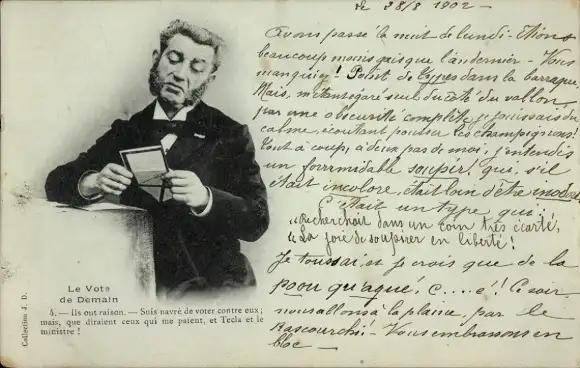 le 28/8 1902 -
Avons passé la nuit de lundi - Étions
beaucoup moins gais que l'an dernier - Vous
manquiez! Point de types dans la baraque.
Mais, m'étant égaré seul du côté du vallon,
par une obscurité complète, je puisais du
calme, écoutant pousser les champignons!
Tout à coup, à deux pas de moi, j'entendis
un forrmidable soupir, qui, s'il
était incolore, était loin d'être inodore
C'était un type qui
"Recherchait dans un coin très écarté,
"La joie de soupirer en liberté!
Je toussai, et je crois que de la
poour qu'a gué, c....é'! Ce soir,
nous allons à la plaine, par le
Rascourchi! - Vous embrassons en
bloc -
Le Vote
de Demain
4. — Ils ont raison. — Suis navré de voter contre eux ;
mais, que diraient ceux qui me paient, et Tecla et le
ministre !
Collection J. D.